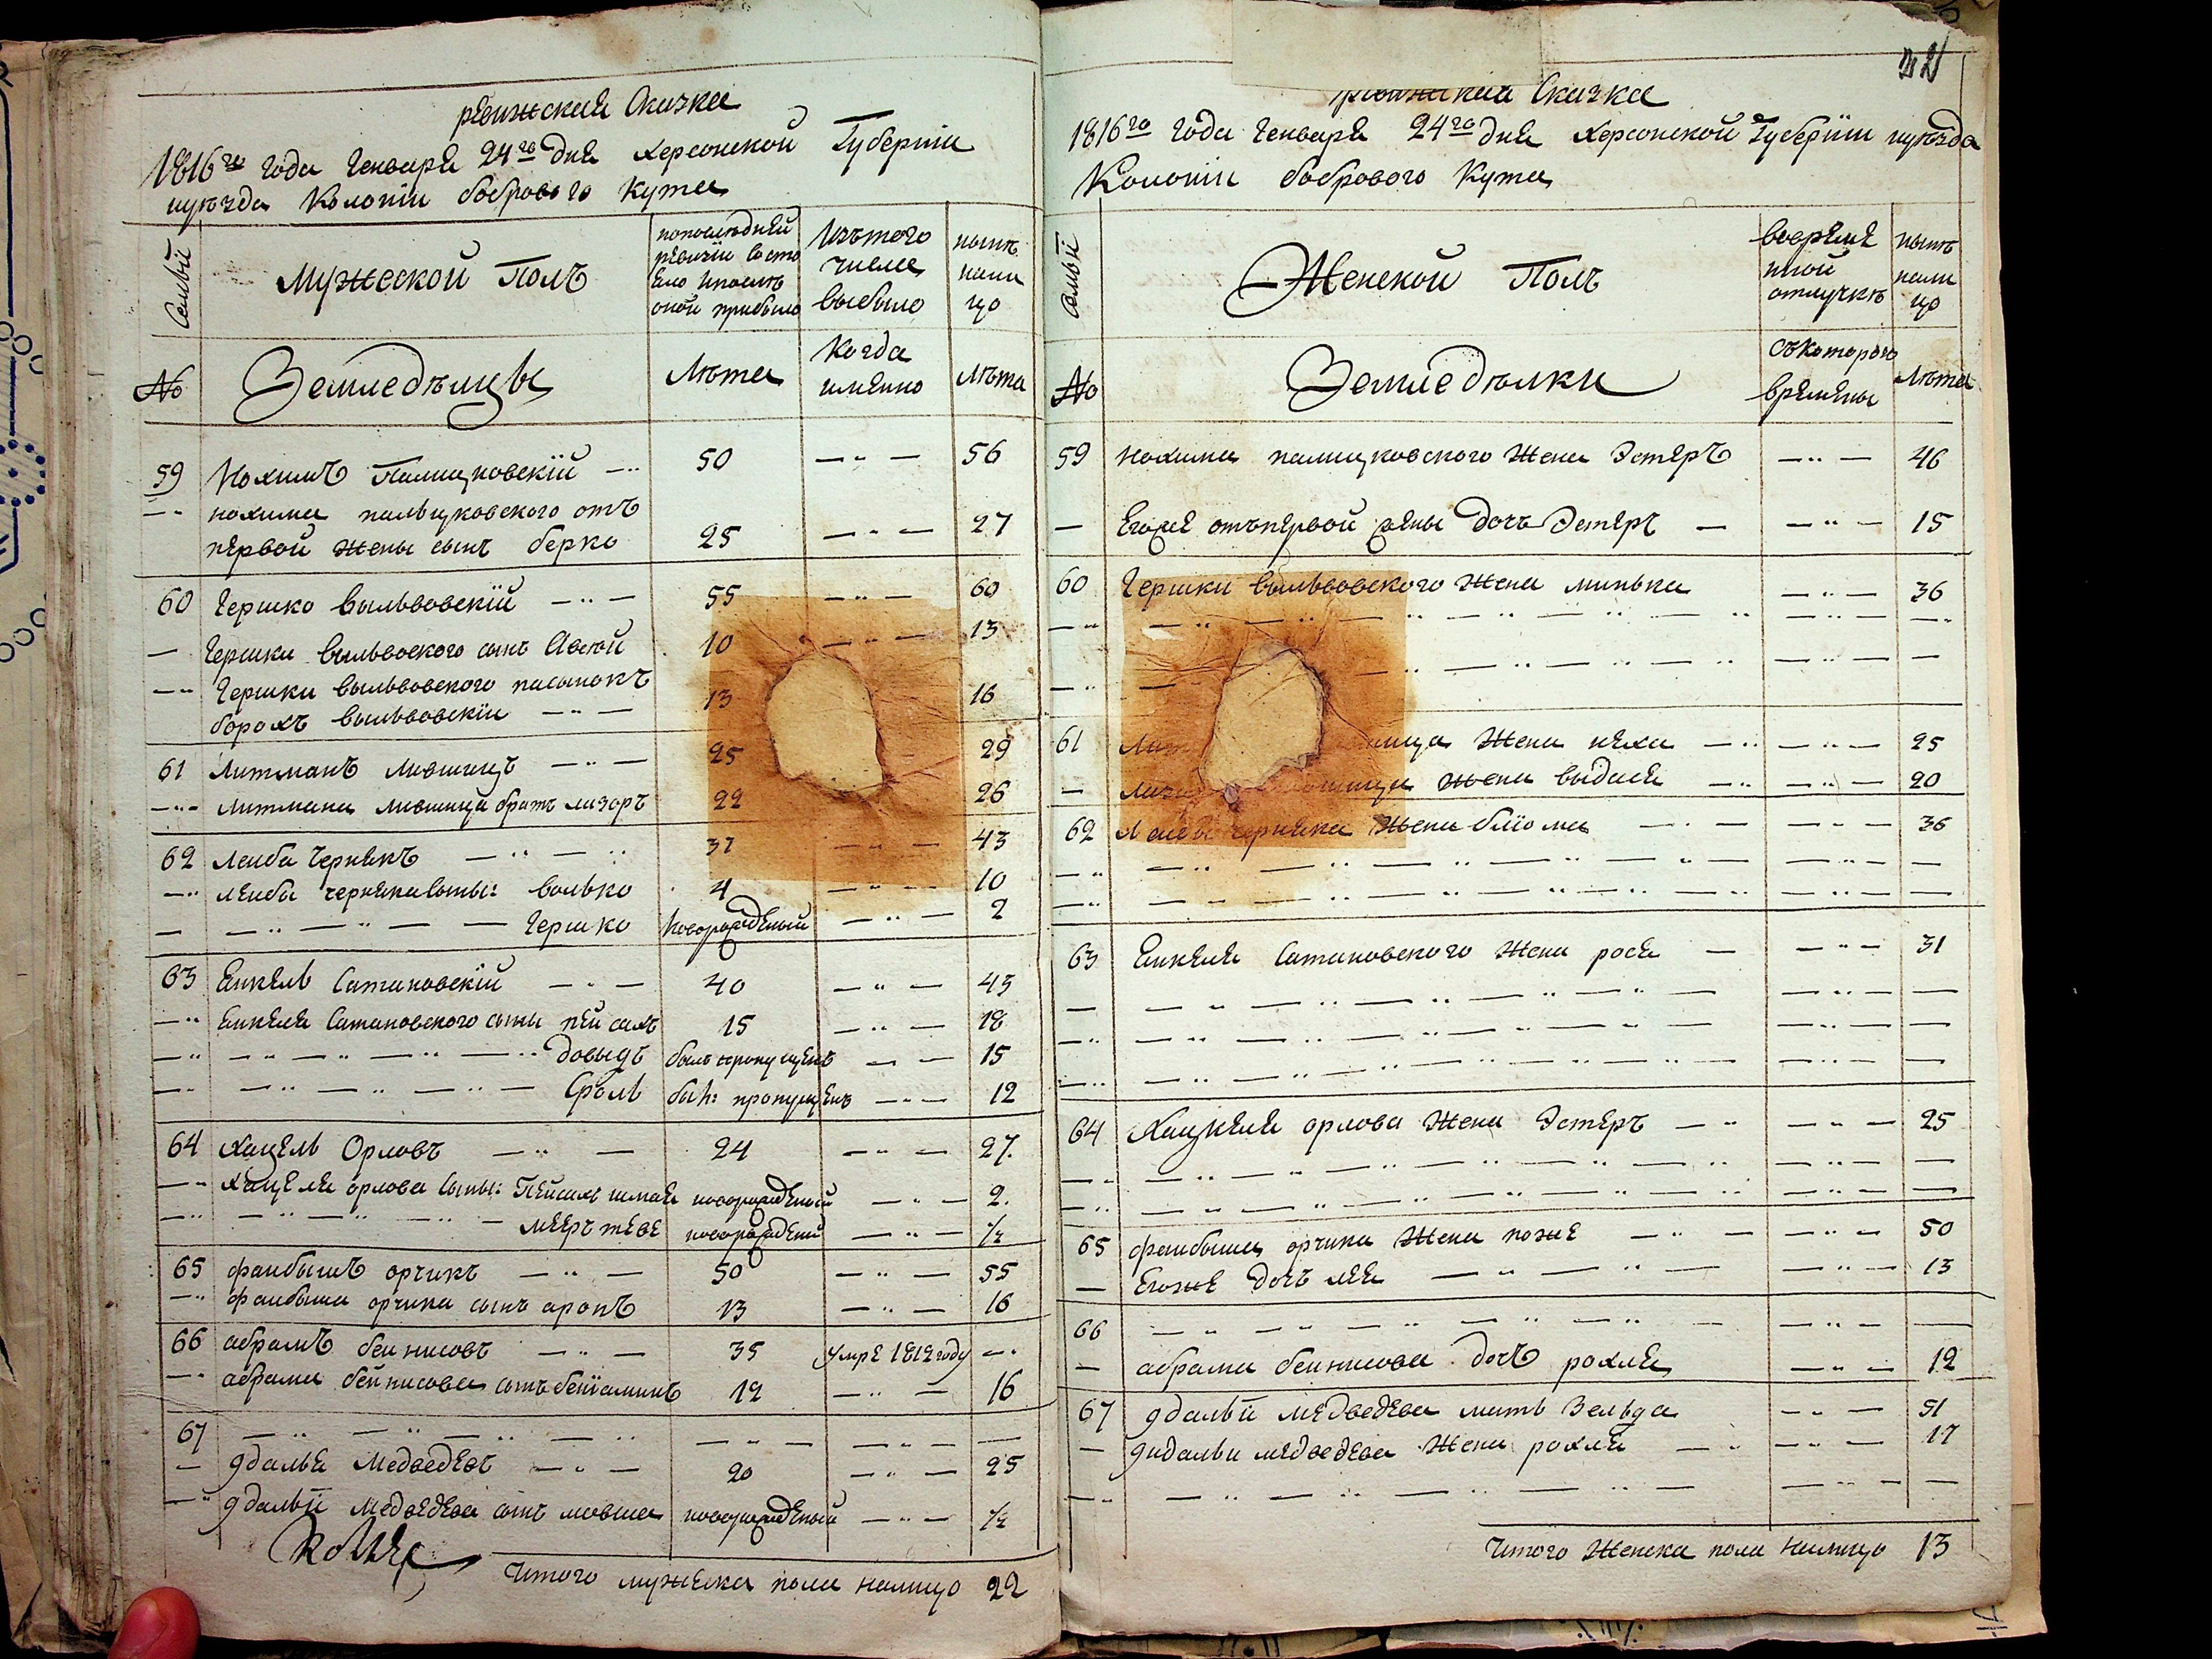 ревижская Сказка
1816го года Генваря 24го дня херсонской Губернiи
иуезда Колонiи бобрового Кута
Семьи
Мужеской Полъ
попоследней
ревизiи состо
яло ипосле
оной прибыло
Изътого
числа
выбыло
ныне
нали
цо
№
Земледельцы
Лета
Когда
имянно
лета
59 Нохимъ Палицковскiй 50 56
нохима пальцковского отъ
первой жены сынъ берко 25 27
60 Гершко вильвовскiй 55 60
Гершки вильвовского сынъ Авсъй 10 13
Гершки вильвовского пасынокъ
борохъ вильвовскiй 13 16
61 Литманъ лившицъ 25 29
литмана лившица братъ лизоръ 22 26
62 леиба Чернякъ 37 43
леибы черняка сыны: волько 4 10
Гершко новорожденый 2
63 Янкель Сатановскiй 40 43
янкеля Сатановского сыны пейсахъ 15 18
довыдъ былъ пропущенъ 15
Сроль былъ: пропущенъ 12
64 Хацкель Орловъ 24 27.
Хацкеля орлова сыны: Пейсахъ шмая новорожденый 2.
мееръ теве новорожденый 1/2
65 фаибышъ орчикъ 50 55
фаибыша орчика сынъ аронъ 13 16
66 абрамъ бейнисовъ 35 умре 1812 году
абрама бейнисова сынъ бенiаминъ 12 16
67
гдалья Медведевъ 20 25
гдальи Медведева сынъ мовша новорожденый 1/2
Итого мужеска пола налицо 22
21
ревижская Сказка
1816го года Генваря 24го дня Херсонской Губернiи иуезда
Колонiи бобрового Кута
Семьи
Женской Полъ
вовремя
нной
отлучке
ныне
нали
цо
№
Земледелки
съкоторого
времяны
Лета
59 нохима палицковского жена Эстеръ 46
Егоже отъпервой жены дочь Эстеръ 15
60 Гершки вильвовского жена минька 36
61 Лит шица жена неха 25
лизо шица жена выдася 20
62 Леибы черняка жена блюма 36
63 Янкеля Сатановского жена рося 31
64 Хацкеля орлова жена Эстеръ 25
65 фаибыша орчика жена нозне 50
Егоже дочъ лея 13
66
абрама бейнисова дочъ рохля 12
67 гдальи медведева мать Зельда 51
гидальи медведева жена рохля 17
Итого женска пола налицо 13